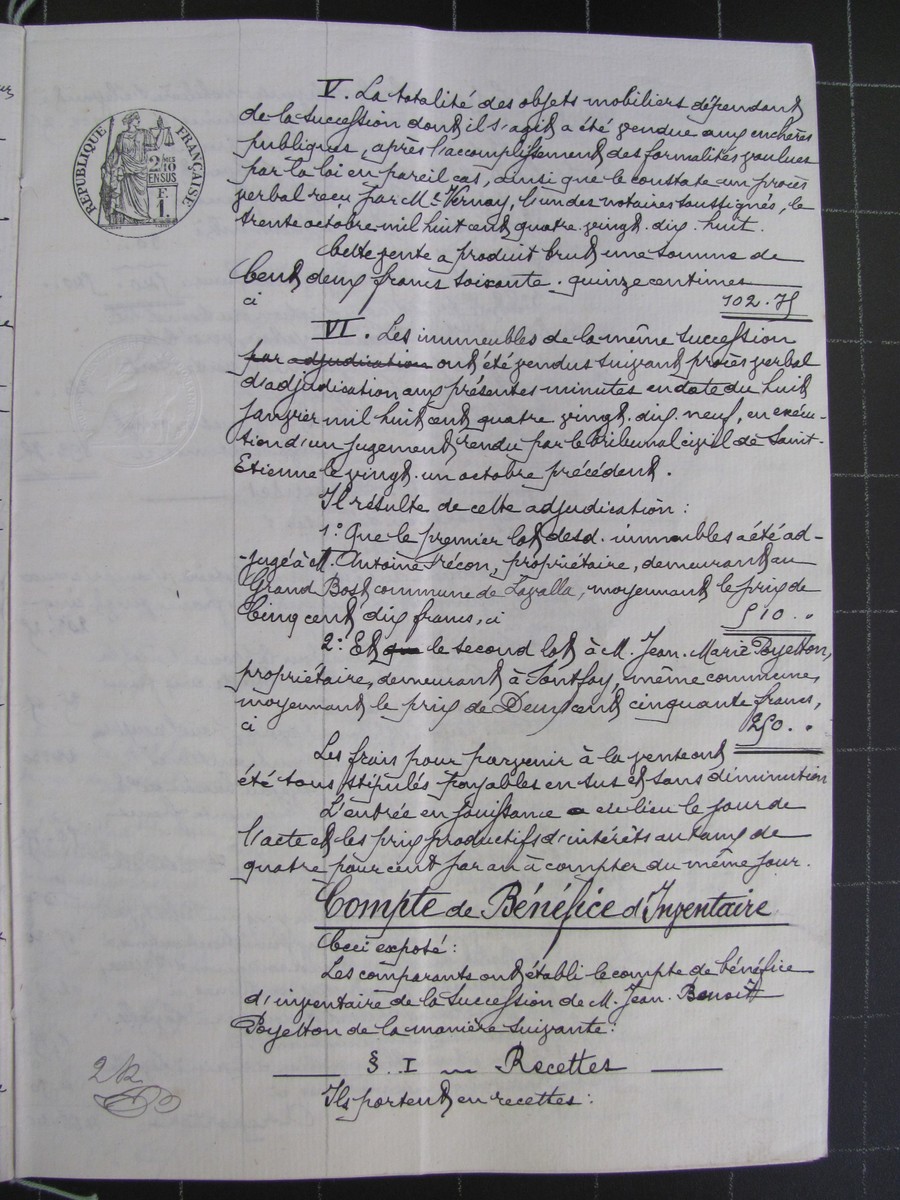 RÉPUBLIQUE FRANÇAISE
2/10 EN SUS
F.
1.
V. La totalité des objets mobiliers dépendant
de la succession dont il s'agit a été vendue aux enchères
publiques, après l'accomplissement des formalités voulues
par la loi en pareil cas, ainsi que le constate un procès
verbal reçu par Me Vernay, l'un des notaires soussignés, le
trente octobre mil huit cent quatre vingt dix huit.
Cette vente a produit brut une somme de
Cent deux francs soixante quinze centimes
ci 102.75
VI. Les immeubles de la même succession
par adjudication ont été vendus suivant procès verbal
d'adjudication aux présentes minutes en date du huit
janvier mil huit cent quatre vingt dix neuf, en exécu-
tion d'un jugement rendu par le tribunal civil de Saint-
Etienne le vingt un octobre précédent.
Il résulte de cette adjudication :
1° Que le premier lot desd. immeubles a été ad-
-jugé à M. Antoine Frécon, propriétaire, demeurant au
Grand Bost commune de Lavalla, moyennant le prix de
Cinq cent dix francs, ci 510 ..
2° Et que le second lot à M. Jean-Marie Poyetton,
propriétaire, demeurant à Fontfoy, même commune,
moyennant le prix de Deux cent cinquante francs,
ci 250 ..
Les frais pour parvenir à la vente ont
été tous stipulés payables en sus et sans diminution
L'entrée en jouissance a eu lieu le jour de
l'acte et les prix productifs d'intérêts au taux de
quatre pour cent par an à compter du même jour.
Compte de Bénéfice d'Inventaire
Ceci exposé :
Les comparants ont établi le compte de bénéfice
d'inventaire de la succession de M. Jean Benoit
Poyetton de la manière suivante :
§. I Recettes
Ils portent en recettes :